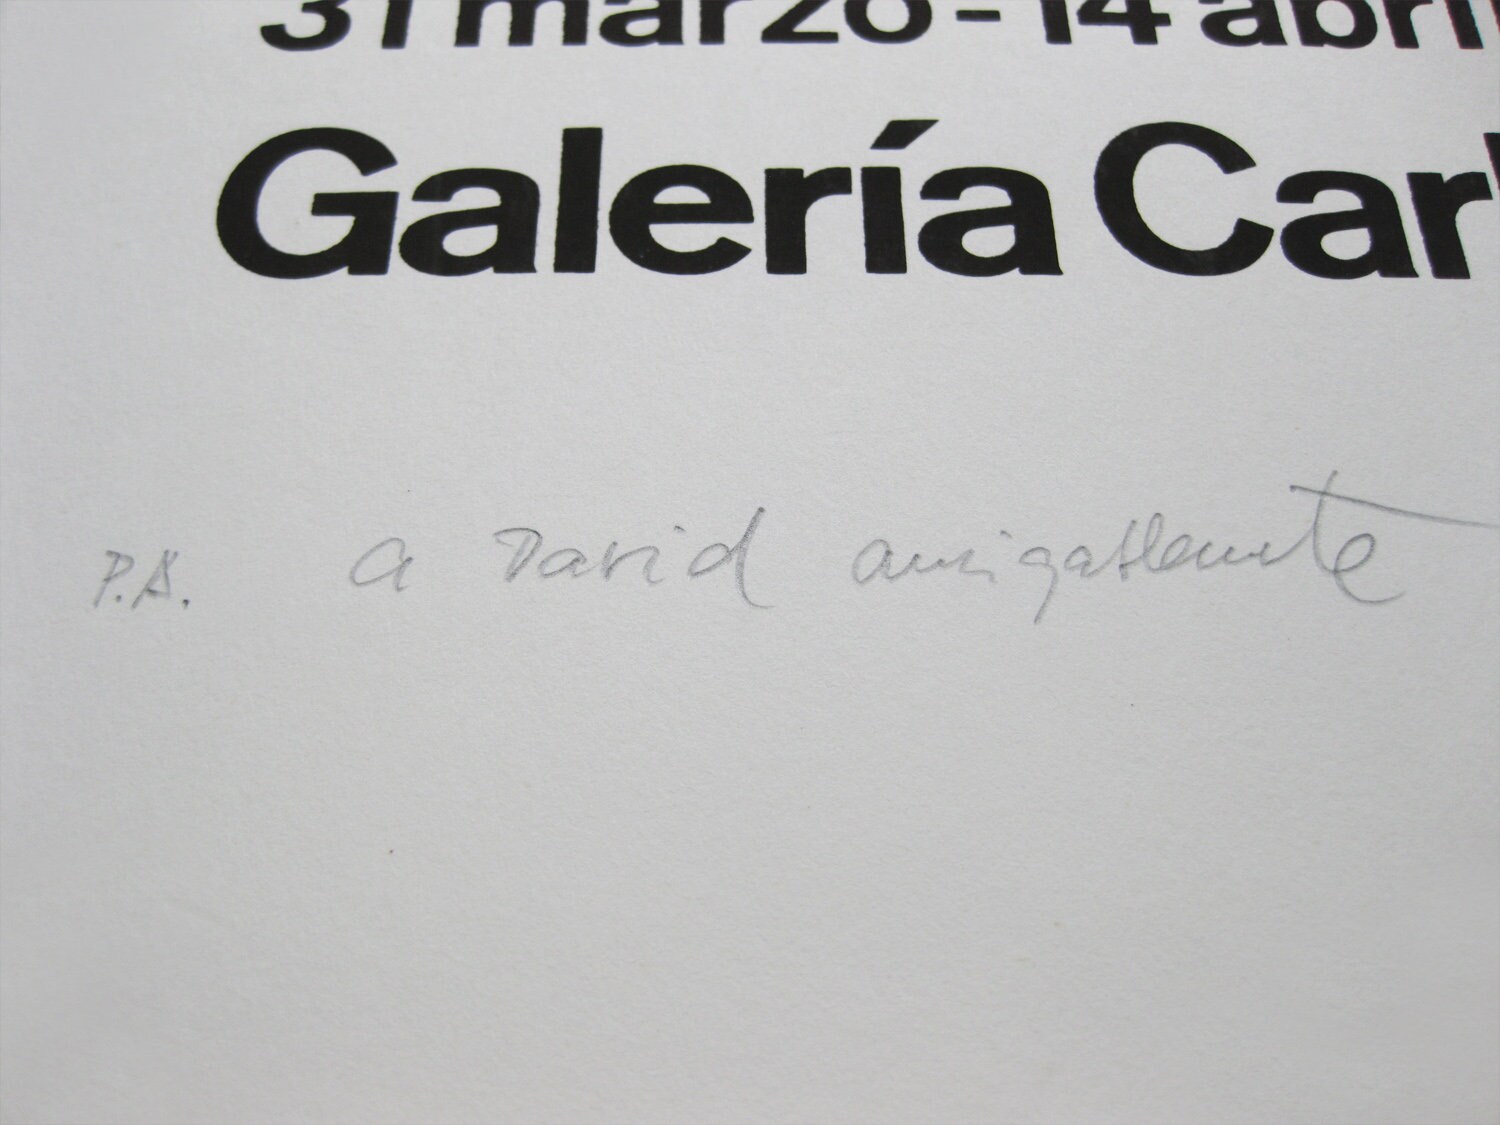 31 marzo - 14 abril
Galería Car
P.A. a David amigablemente